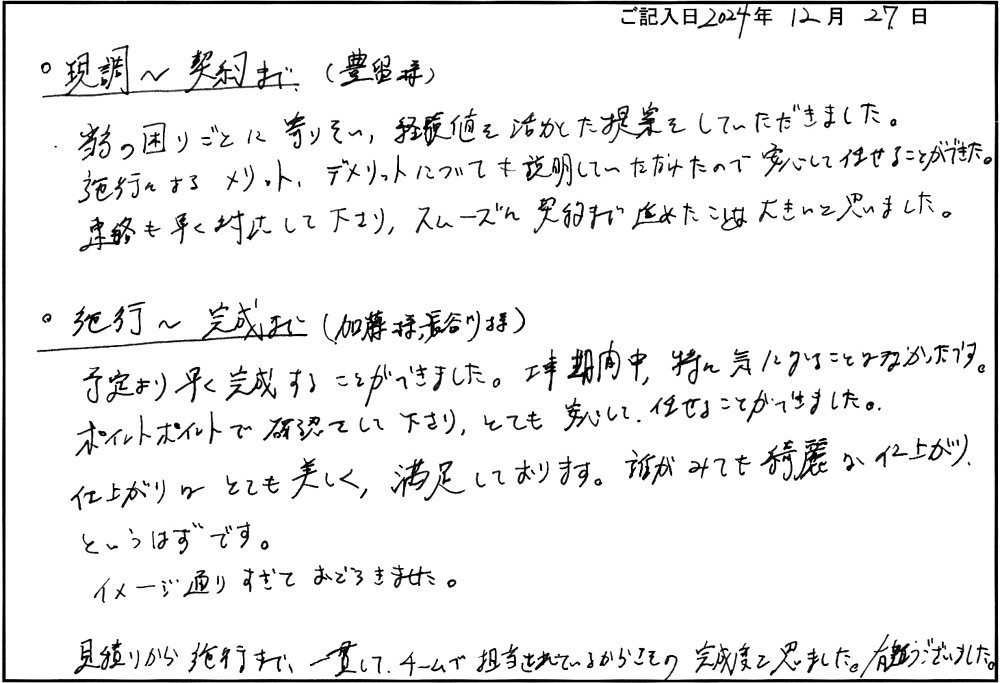 ご記入日 2024年 12月 27日
○ 現調～契約まで (豊留様)
弱つ困りごとに寄りそい、経験値を活かした提案をしていただきました。
施行によるメリット、デメリットについても説明していただけたので安心して任せることができた。
連絡も早く対応して下さり、スムーズに契約まで進めたことは大きいと思いました。
○ 施行～完成まで (加藤様、長谷川様)
予定より早く完成することができました。工事期間中、特に気になることはなかったです。
ポイントポイントで確認をして下さり、とても安心して、任せることができました。
仕上がりは とても美しく、満足しております。誰がみても綺麗な仕上がり、
というはずです。
イメージ通りすぎておどろきました。
見積りから施行まで、一貫して、チームで担当されているからこその完成度と思いました。有難うございました。